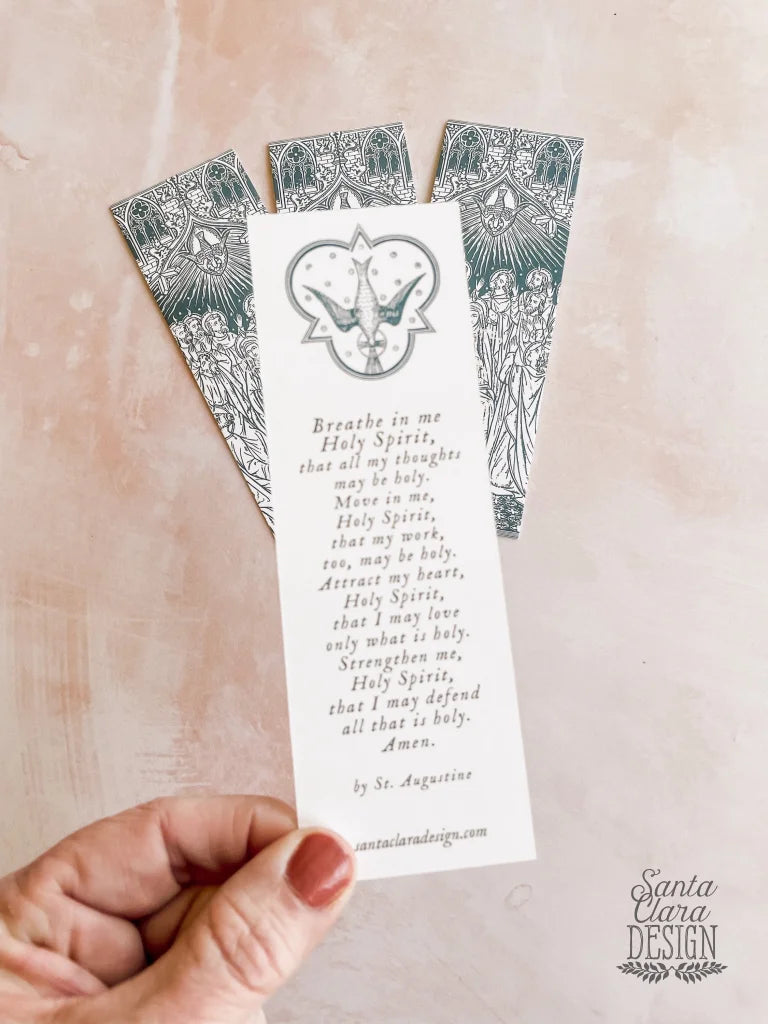 Breathe in me
Holy Spirit,
that all my thoughts
may be holy.
Move in me,
Holy Spirit,
that my work,
too, may be holy.
Attract my heart,
Holy Spirit,
that I may love
only what is holy.
Strengthen me,
Holy Spirit,
that I may defend
all that is holy.
Amen.
by St. Augustine
santaclaradesign.com
Santa
Clara
DESIGN